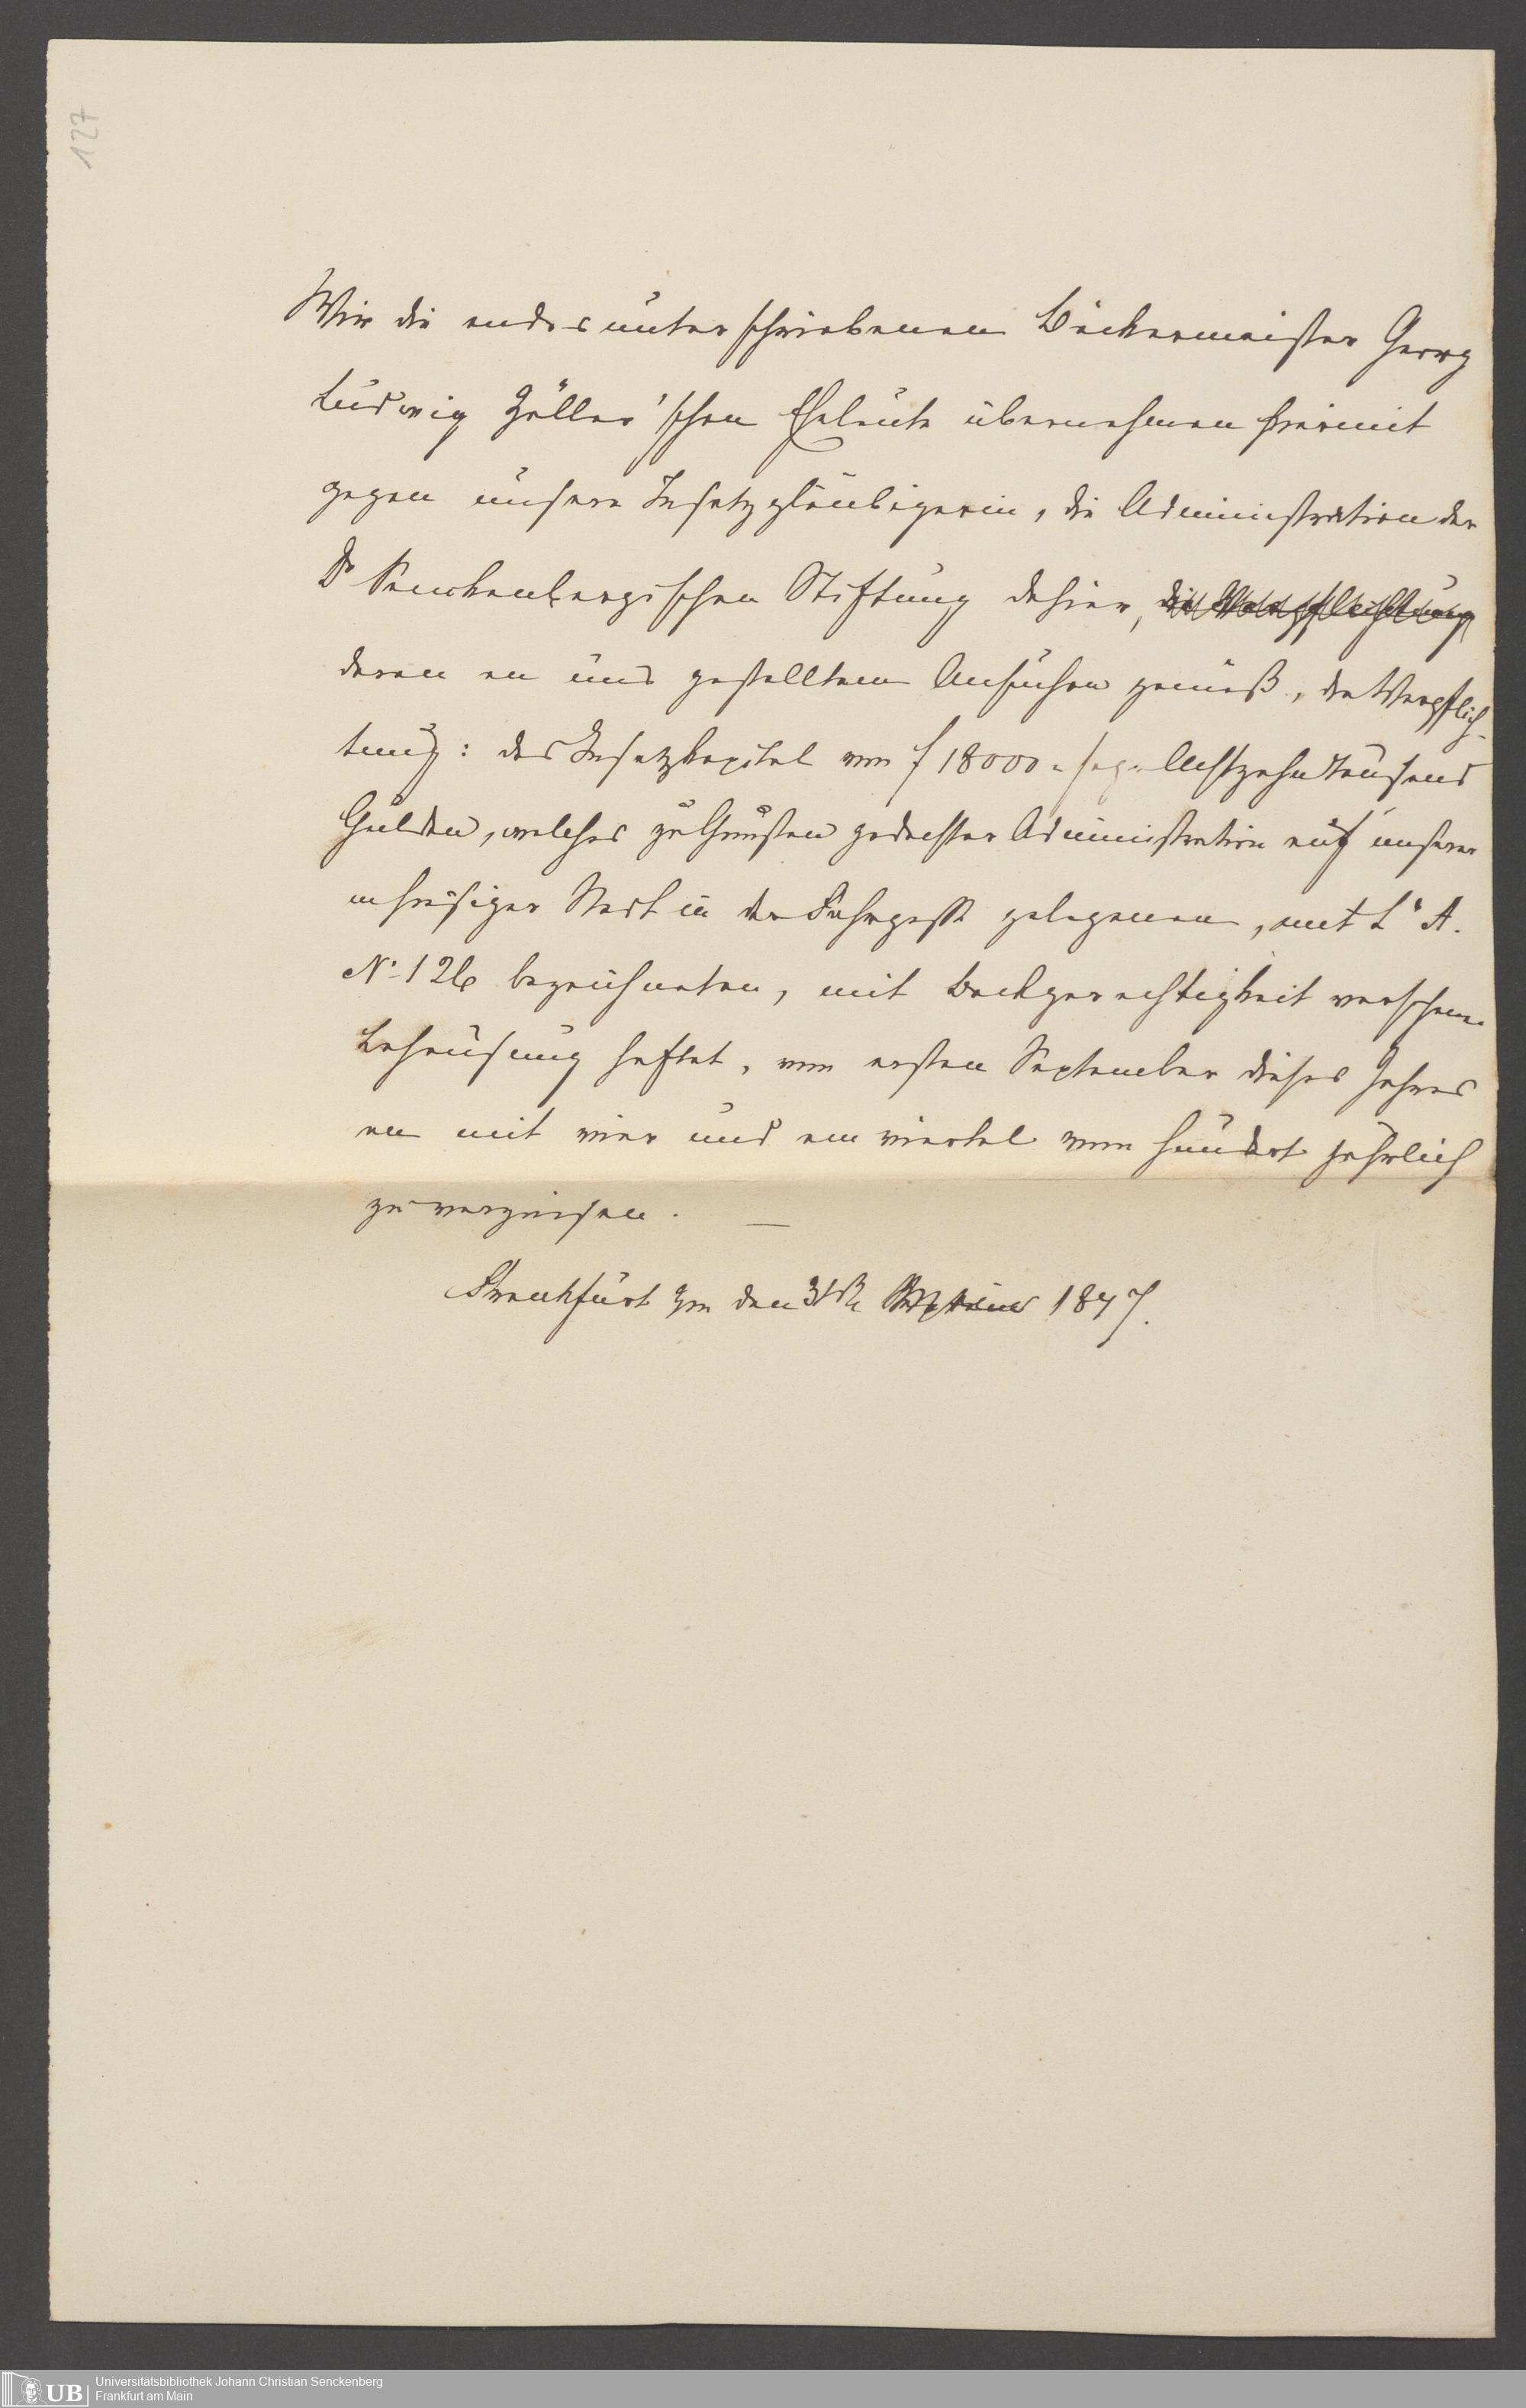 127
Wir die endesunterschriebenen Bäckermeister Georg
Ludwig Zöller'schen Eheleute übernehmen hiermit
gegen unsere Insatzgläubigerin, die Administration der
Dr Senckenbergischen Stiftung dahier, die Verpflichtung
deren an uns gestelltem Ansuchen gemäß, die Verpflich-
tung: das Insatzkapital von f 18000 sage Achtzehntausend
Gulden, welches zu Gunsten gedachter Administration auf unserer
in hiesiger Stadt in der Fahrgasse gelegenen, mit L A.
No 126 bezeichneten, mit Backgerechtigkeit versehenen
Behausung haftet, vom ersten September dieses Jahres
an mit vier und ein viertel vom hundert jährlich
zu verzinsen. —
Frankfurt am den 31 1847.
UB
Universitätsbibliothek Johann Christian Senckenberg
Frankfurt am Main